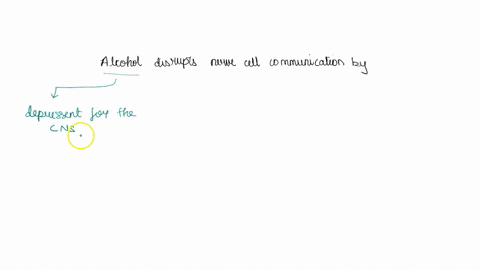 Alcohol disrupts nerve cell communication by
depressent for the
CNS.